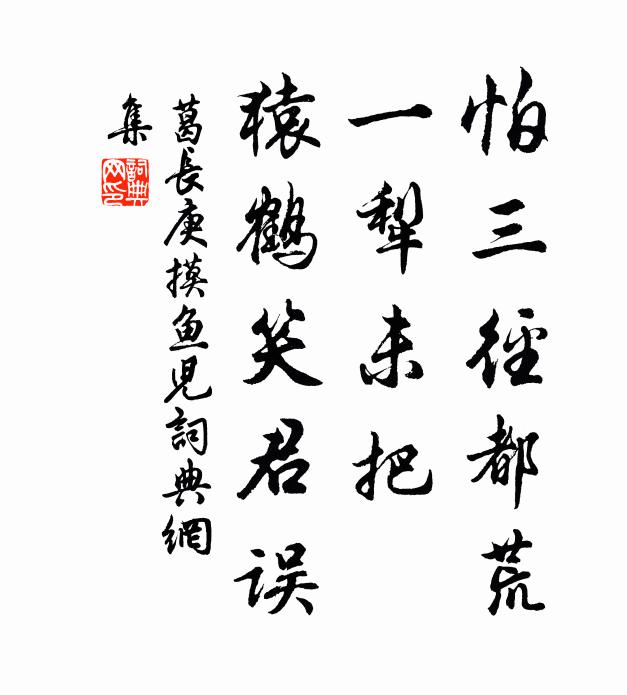 怕三徑都荒
一犁未把
猿鶴笑君误
葛長庚摸魚兒詞典網
集
詞典
网印